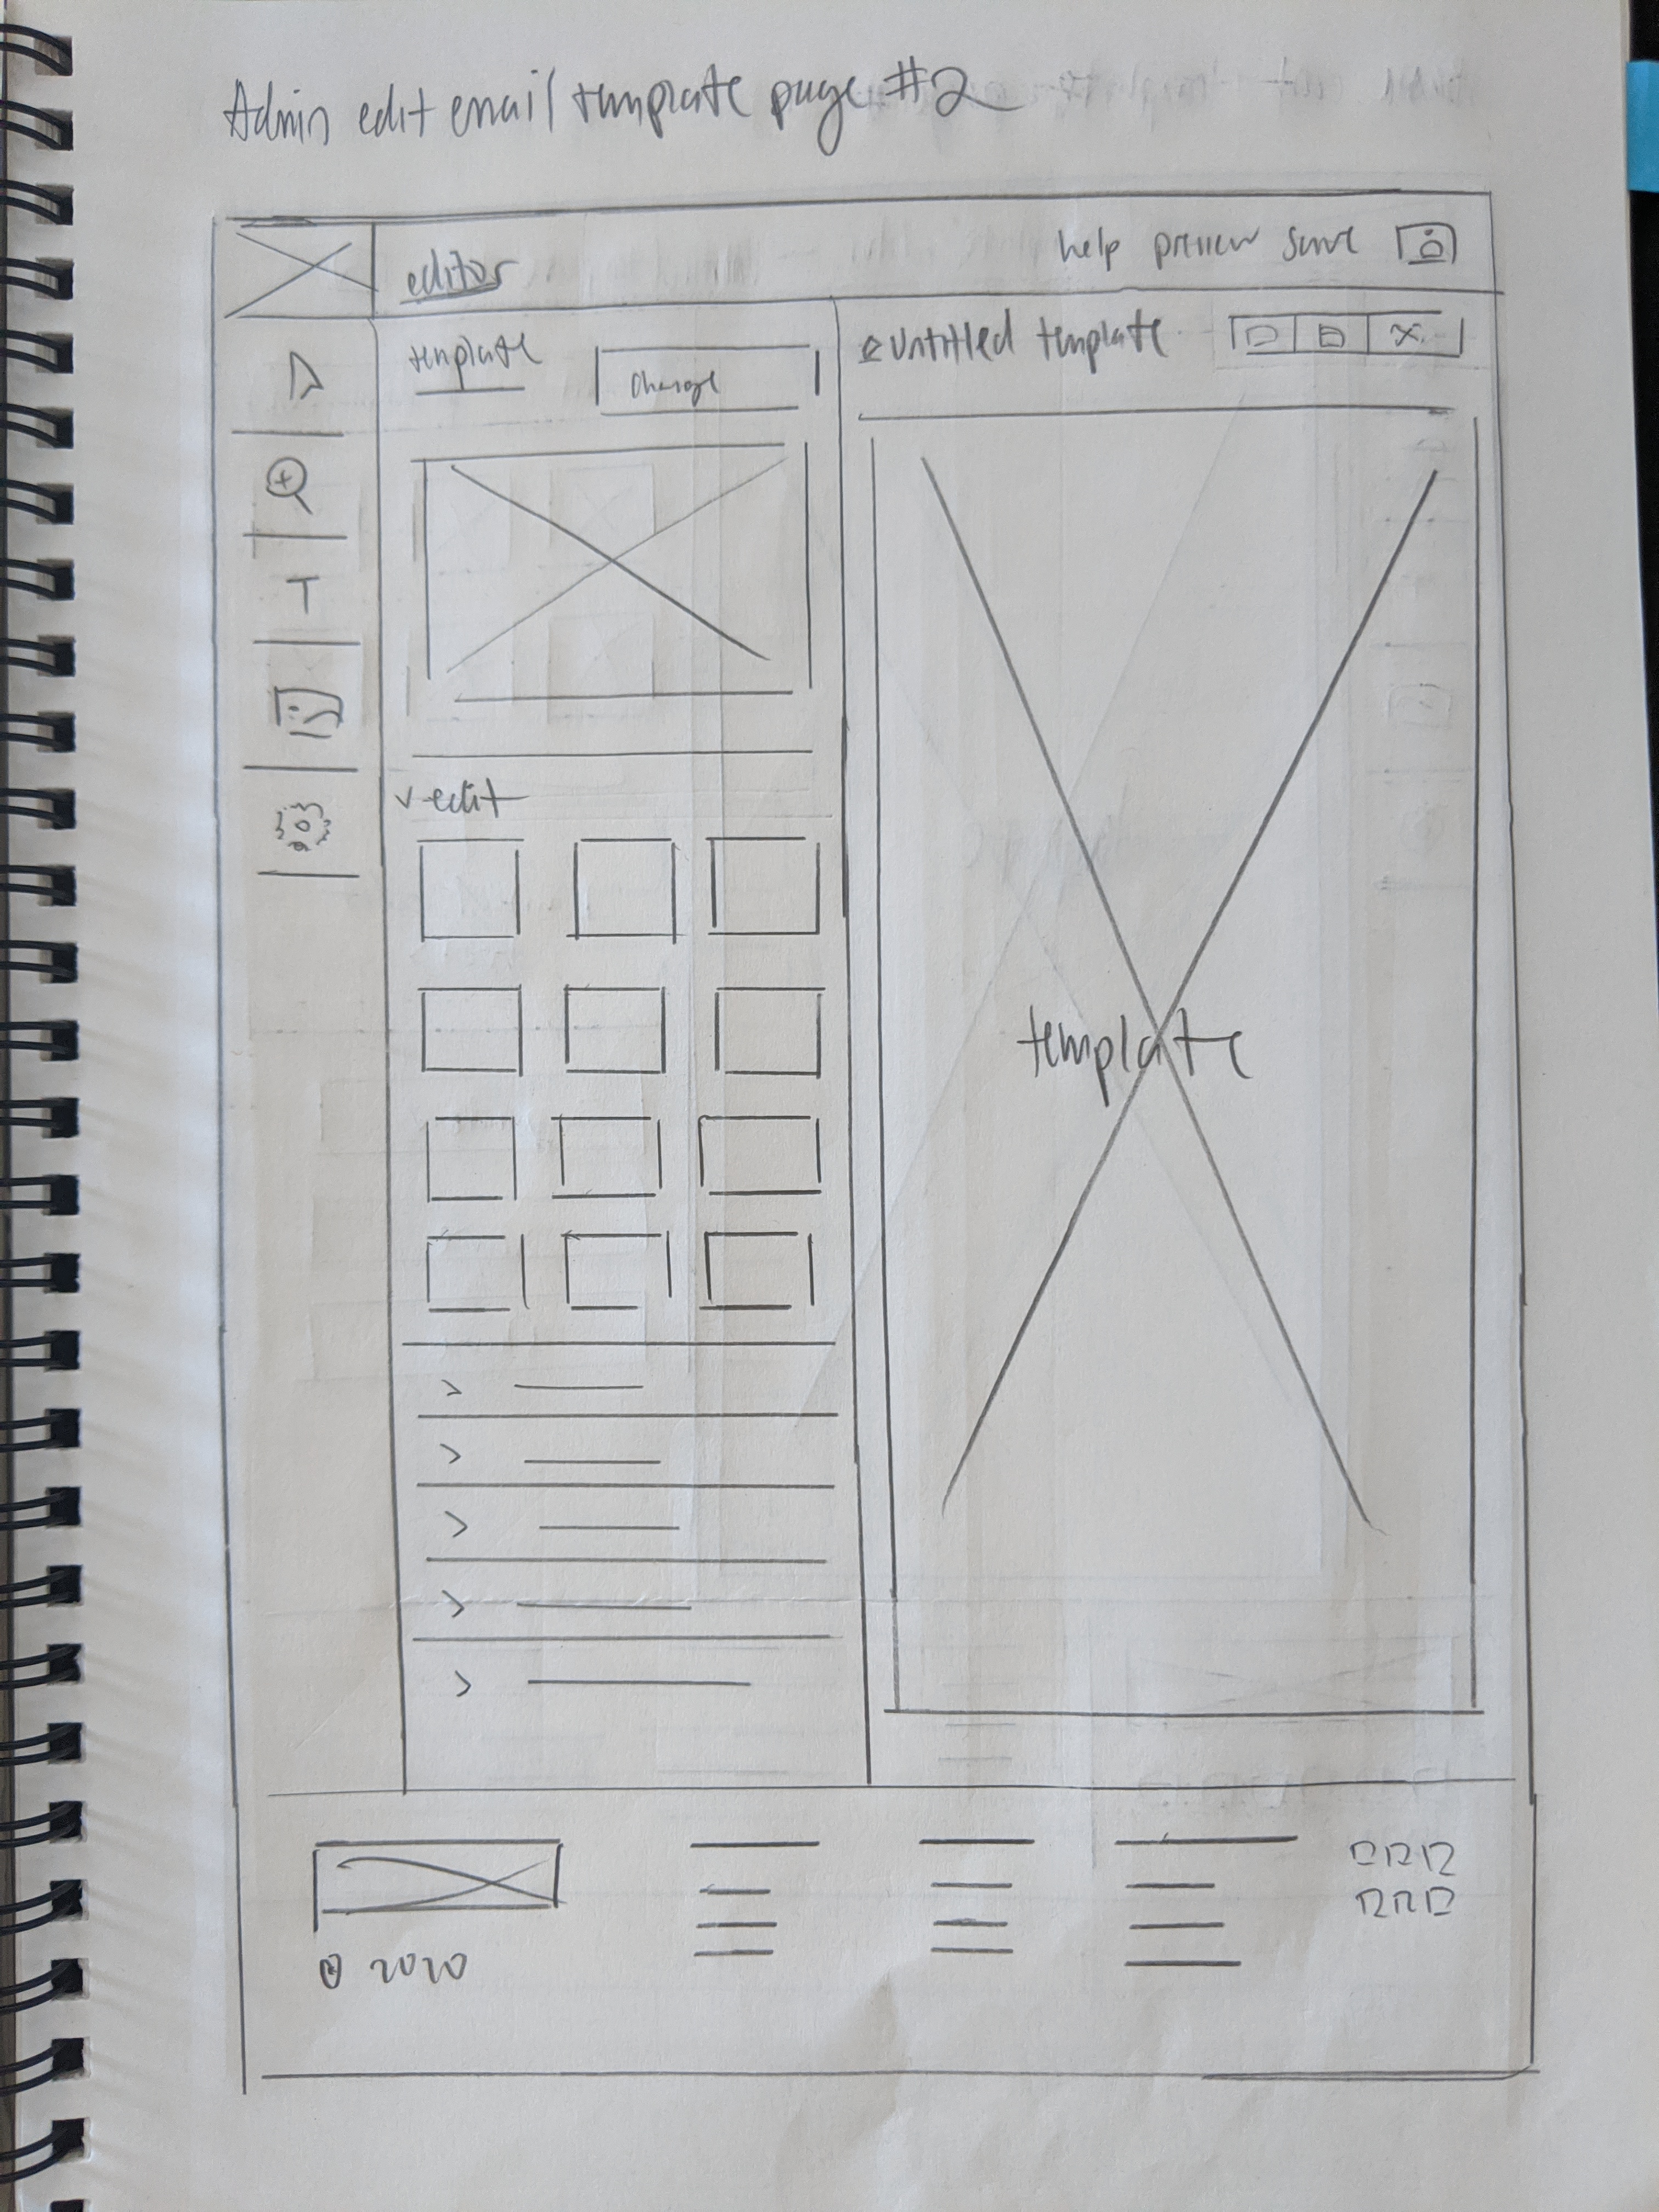 Admin edit email template page #2
editor
help preview save
template
change
untitled template
T
edit
template
© 2020